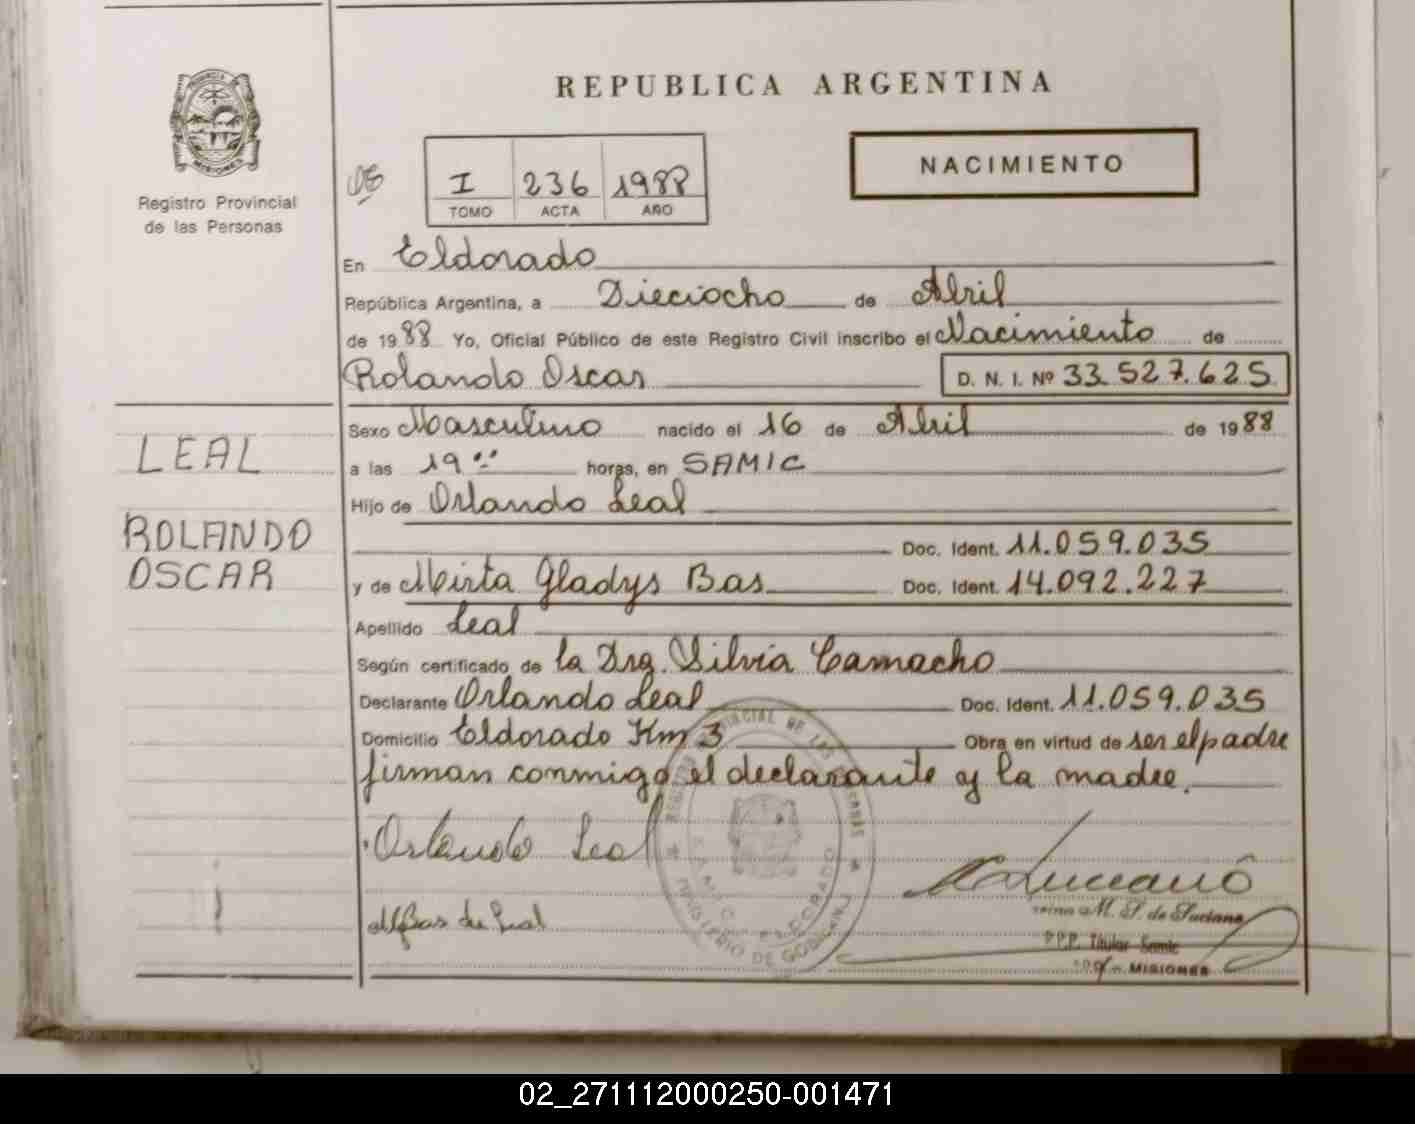 REPUBLICA ARGENTINA
NACIMIENTO
Registro Provincial
de las Personas
I 236 1988
TOMO ACTA AÑO
En Eldorado
República Argentina, a Dieciocho de Abril
de 1988 Yo, Oficial Público de este Registro Civil inscribo el Nacimiento de
Rolando Oscar D. N. I. Nº 33.527.625
Sexo Masculino nacido el 16 de Abril de 1988
a las 19 horas, en SAMIC
Hijo de Orlando Leal
Doc. Ident. 11.059.035
y de Mirta Gladys Bas Doc. Ident. 14.092.227
Apellido Leal
Según certificado de la Dra. Silvia Camacho
Declarante Orlando Leal Doc. Ident. 11.059.035
Domicilio Eldorado Km 3 Obra en virtud de ser el padre
firman conmigo el declarante y la madre.
LEAL
ROLANDO
OSCAR
Orlando Leal
MGBas de Leal
Luciano
M. S. de Luciano
Titular Samic
MISIONES
MINISTERIO DE GOBIERNO
ELDORADO
02_271112000250-001471